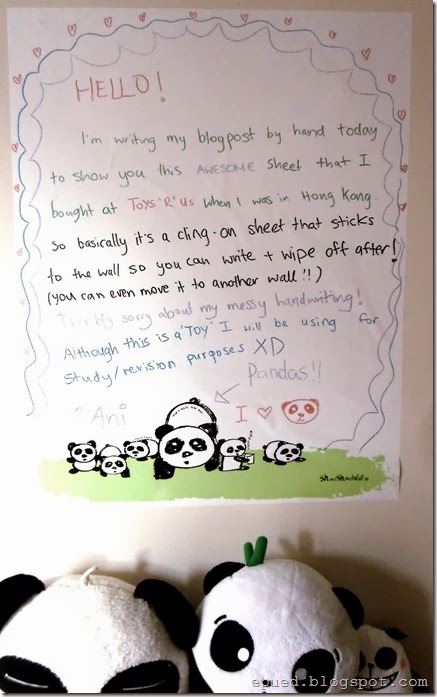 HELLO!
I'm writing my blogpost by hand today
to show you this AWESOME sheet that I
bought at Toys'R'Us when I was in Hong Kong.
So basically it's a cling-on sheet that sticks
to the wall so you can write + wipe off after!
(you can even move it to another wall!!)
Terribly sorry about my messy handwriting!
Although this is a 'TOY' I will be using for
study/revision purposes XD
Pandas!!
Ani
I ♥
epued.blogspot.com